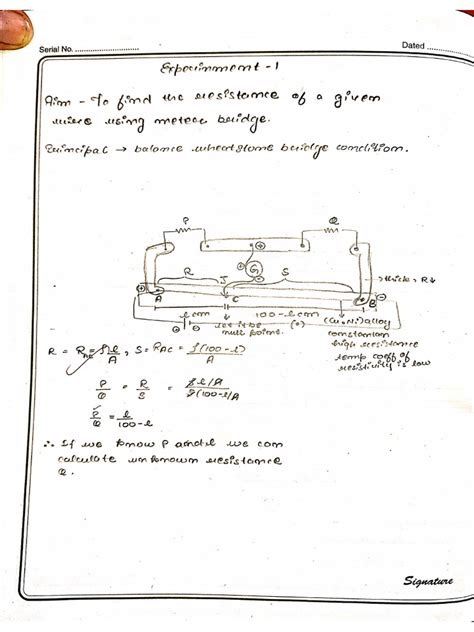 Serial No. ............................
Dated ..............
Experimment - 1
Aim - To find the resistance of a given
wire using meter bridge.
Principal → balance wheatstone bridge condition.
P
Q
+
G
R
S
J
→ thick, R↓
+
A
C
B
-
l cm
100-l cm
let it be
null point.
(Cu+Ni) alloy
constantan
high resistance
temp coeff of
resistivity is low
R = R_AC = ρl/A , S = R_AC = ρ(100-l)/A
P/Q = R/S = ρl/A / ρ(100-l)/A
P/Q = l/100-l
∴ If we know P and l we can
calculate unknown resistance
Q.
Signature